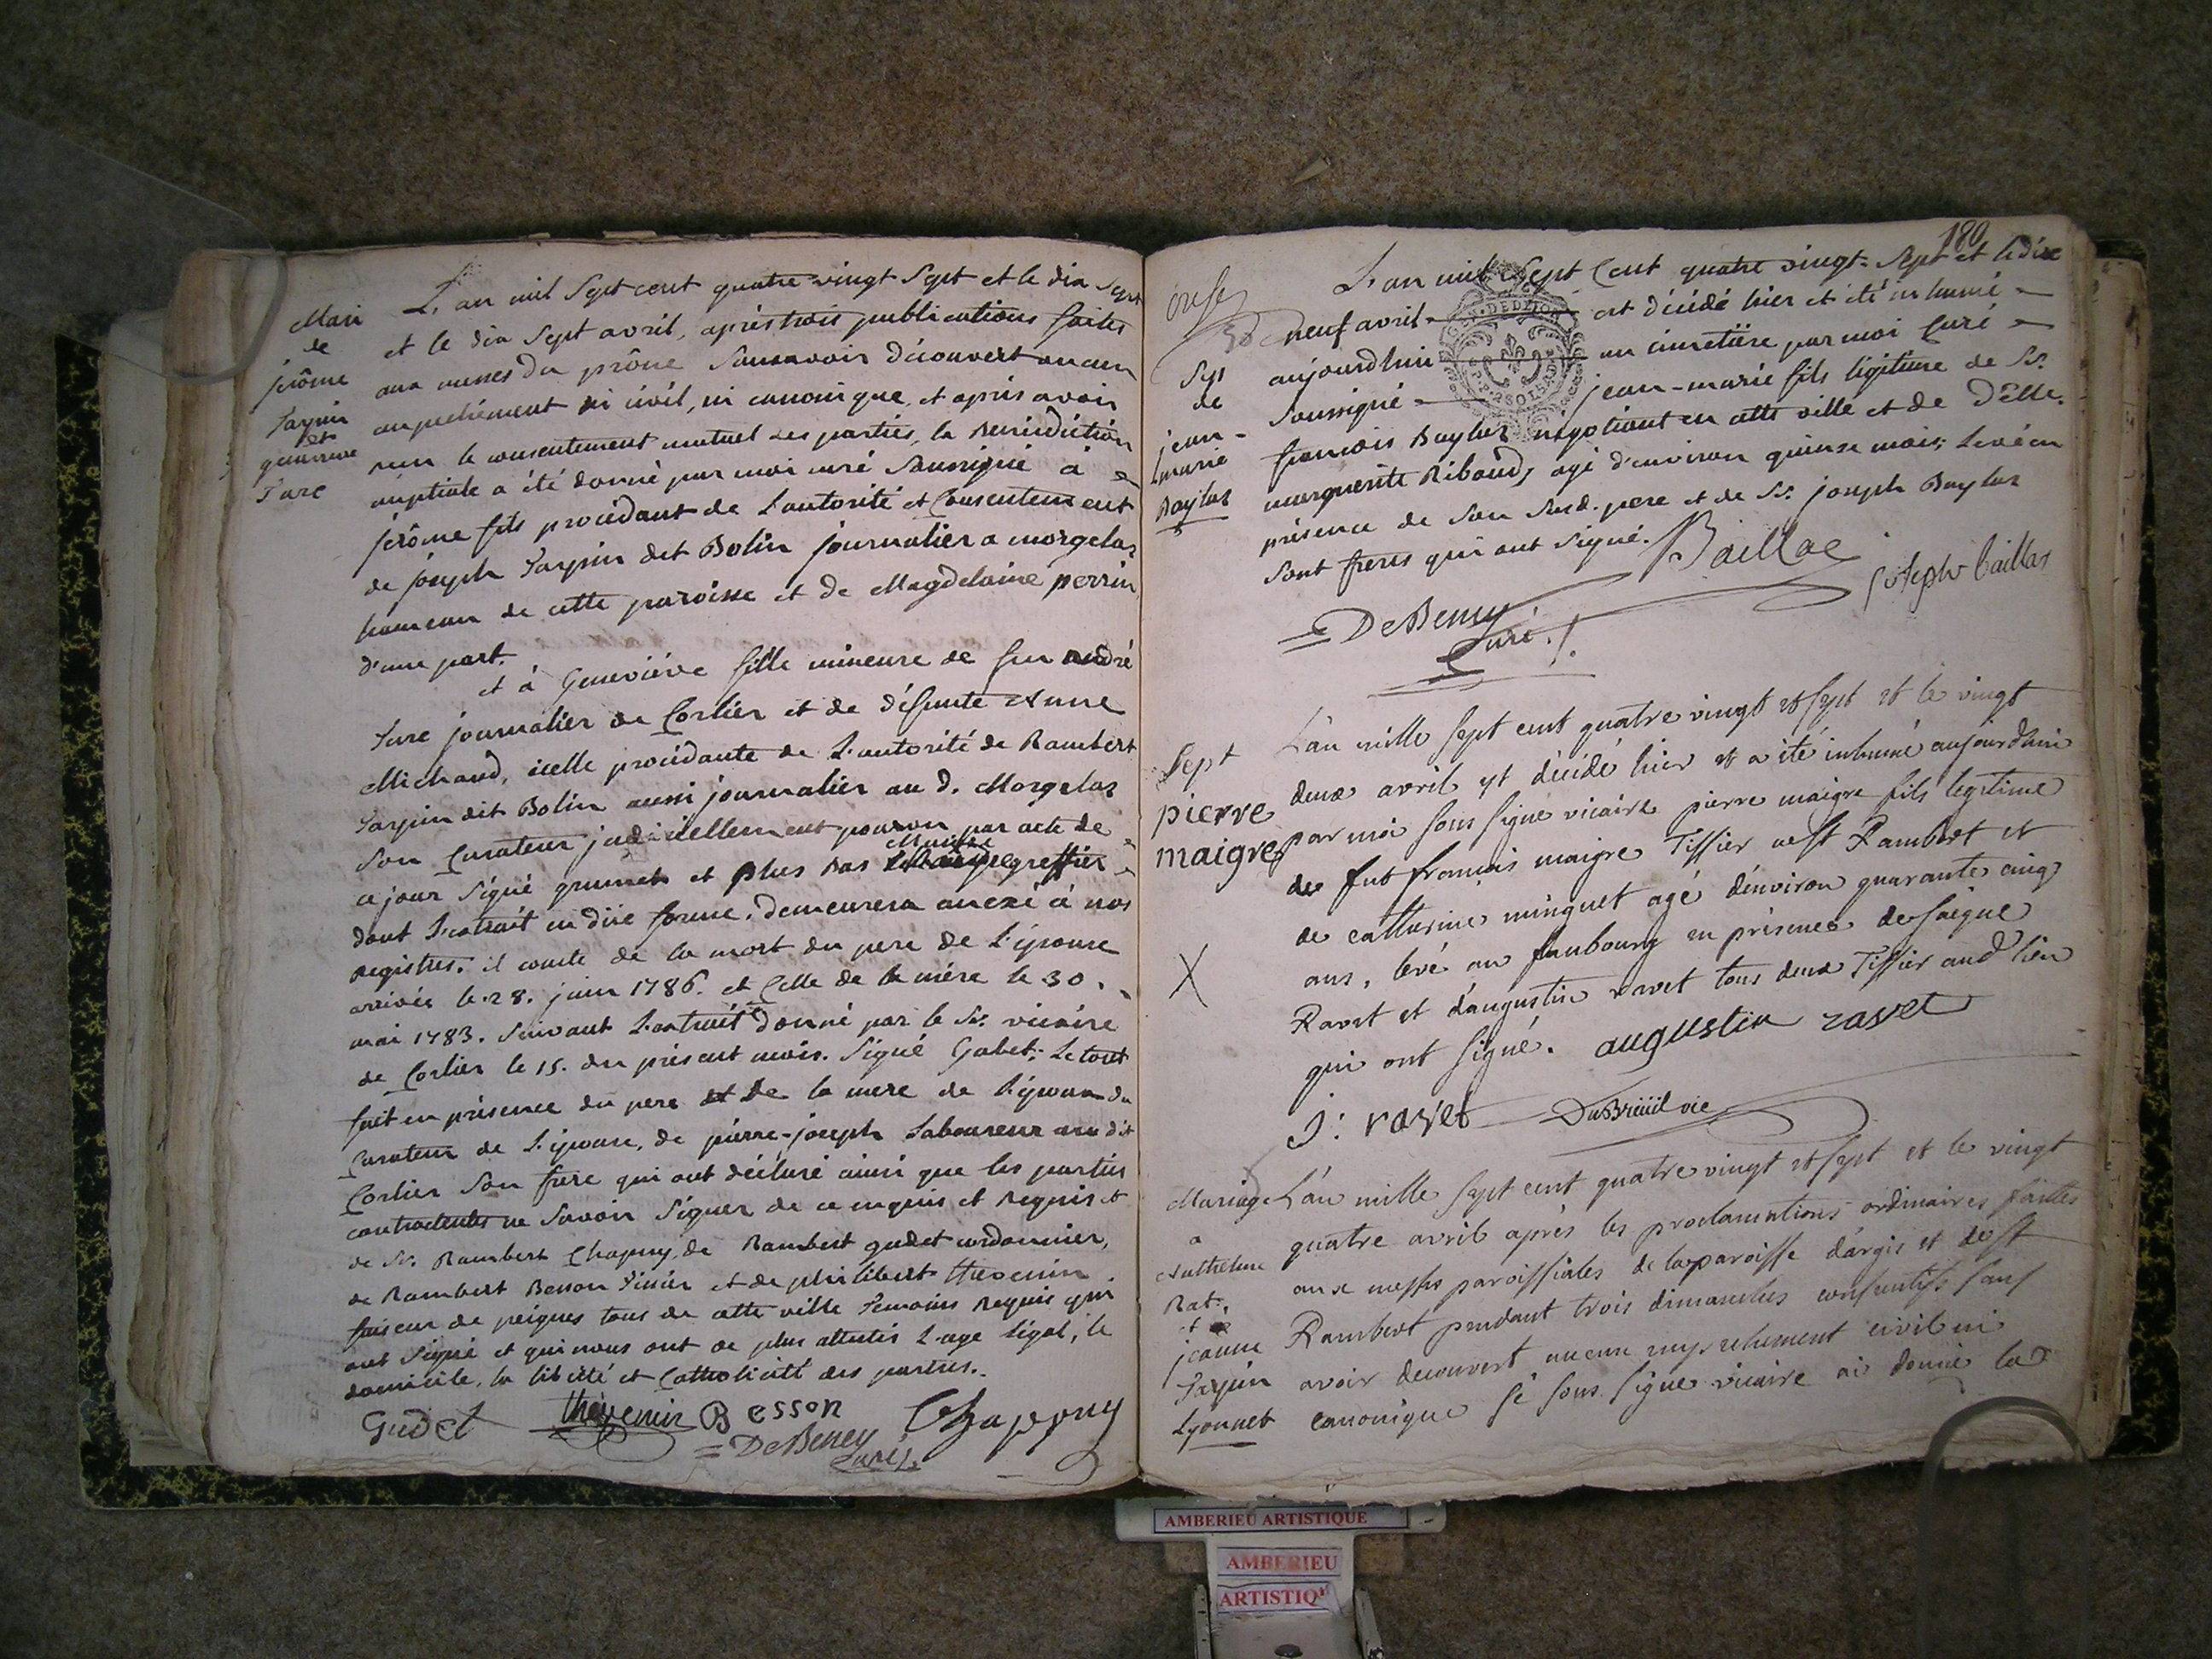 Mari
de
jerôme
Tarpin
et
genevieve
Ture
L'an mil Sept cent quatre vingt Sept et le dix Sept
et le dix Sept avril, après trois publications faites
aux messes du prône Sans avoir découvert aucun
empechement ni civil, ni canonique, et après avoir
reçu le consentement mutuel des parties, la Benediction
nuptiale a été donné par moi curé Soussigné à
jérôme fils procédant de L'autorité et Consentement
de joseph Tarpin dit Bolin journalier a morgelas
hameau de cette paroisse et de Magdelaine perrin
d'une part.
et à Geneviève fille mineure de feu andré
Ture journalier de Corlier et de défunte Anne
Michaud, icelle procédante de L'autorité de Rambert
Tarpin dit Bolin aussi journalier au d. Morgelas
Son Curateur judiciellement pourvu par acte de
ce jour Signé grumet et plus bas greffier
dont L'extrait en due forme, demeurera anexé à nos
Registres. il conste de la mort du pere de L'épouse
arrivée le 28. juin 1786. et Celle de la mére le 30.
mai 1783. Suivant L'extrait donné par le Sr. vicaire
de Corlier le 15. du présent mois. Signé Gabet; Le tout
fait en présence du pere et de la mere de l'époux du
Curateur de L'épouse, de pierre-joseph Laboureur au dit
Corlier Son frere qui ont déclaré ainsi que les parties
contractantes ne Savoir Signer de ce enquis et Requis et
de Sr. Rambert Chapuy, de Rambert gudet cordonnier,
de Rambert Besson Tissier et de philibert thevenin
faiseur de peignes tous de cette ville Temoins Requis qui
ont Signé et qui nous ont de plus attestés L'age légal, le
domicile, la liberté et Catholicité des parties.
Gudet thevenin Besson
= DeBeney
Curé
180
Sept
de
jean-
marie
Baylas
L'an mil Sept Cent quatre vingt-Sept et le dix
neuf avril est décédé hier et été inhumé
aujourdhui au cimetière par moi Curé
Soussigné jean-marie fils légitime de Sr.
françois Baylas négotiant en cette ville et de Delle.
marguerite Ribaud, agé d'environ quinze mois; Levé en
présence de Son Susd. pere et de Sr. joseph Baylas
Sont freres qui ont Signé.
Baillac
joseph baillas
= DeBeney
Curé./.
Sept
pierre
maigre
L'an mille sept cent quatre vingt et sept et le vingt
deux avril est décédé hier et a été inhumé aujourdhui
par moi sous signe vicaire pierre maigre fils legitime
de fut francois maigre Tissier a St Rambert et
de catherine minguet agé d'environ quarante cinq
ans, levé au faubourg en présence de
Ravet et d'augustin ravet tous deux Tissier aud lieu
qui ont signé. augustin ravet
j: ravet DuBreüil vic
Mariage
a
Anthelme
Rat,
et
jeanne
Tarpin
Lyonnet
L'an mille sept cent quatre vingt et sept et le vingt
quatre avril après les proclamations ordinaires faites
aux messes paroissiales de la paroisse d'argis et de St
Rambert pendant trois dimanches consecutifs sans
avoir decouvert aucun empechement civil ni
canonique je sous signe vicaire ai donné la
AMBERIEU ARTISTIQUE
AMBERIEU
ARTISTIQ